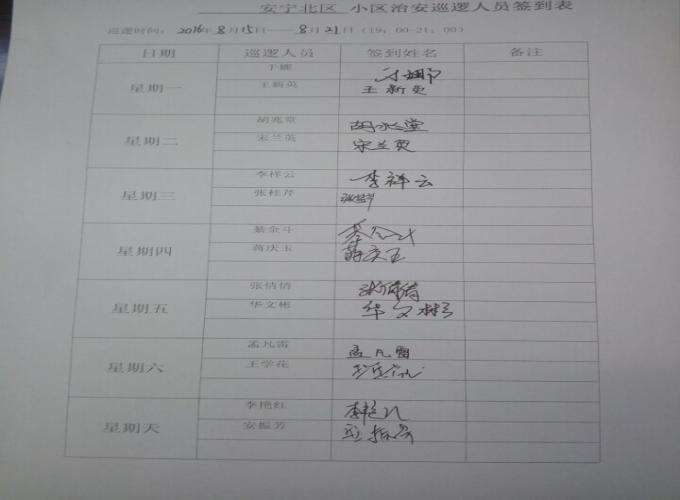 安宁北区 小区治安巡逻人员签到表
巡逻时间: 2016年8月15日——8月21日(19:00-21:00)
日期 巡逻人员 签到姓名 备注
星期一
于娜 于娜
王新英 王新英
星期二
胡兆堂 胡兆堂
宋兰英 宋兰英
星期三
李祥云 李祥云
张桂芹 张桂芹
星期四
綦金斗
蒋庆玉
星期五
张倩倩 张倩倩
华文彬 华文彬
星期六
孟凡雷 孟凡雷
王学花
星期天
李艳红 李艳红
安振芳